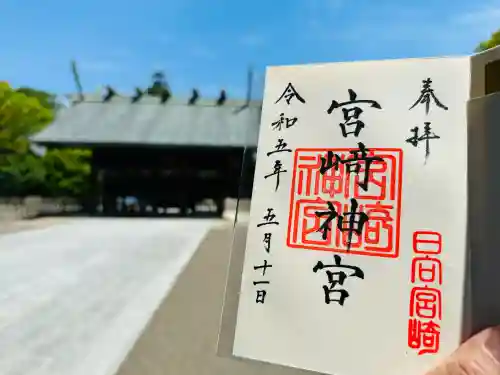 奉拝
日向宮崎
宮﨑神宮
宮崎神宮
令和五年 五月十一日